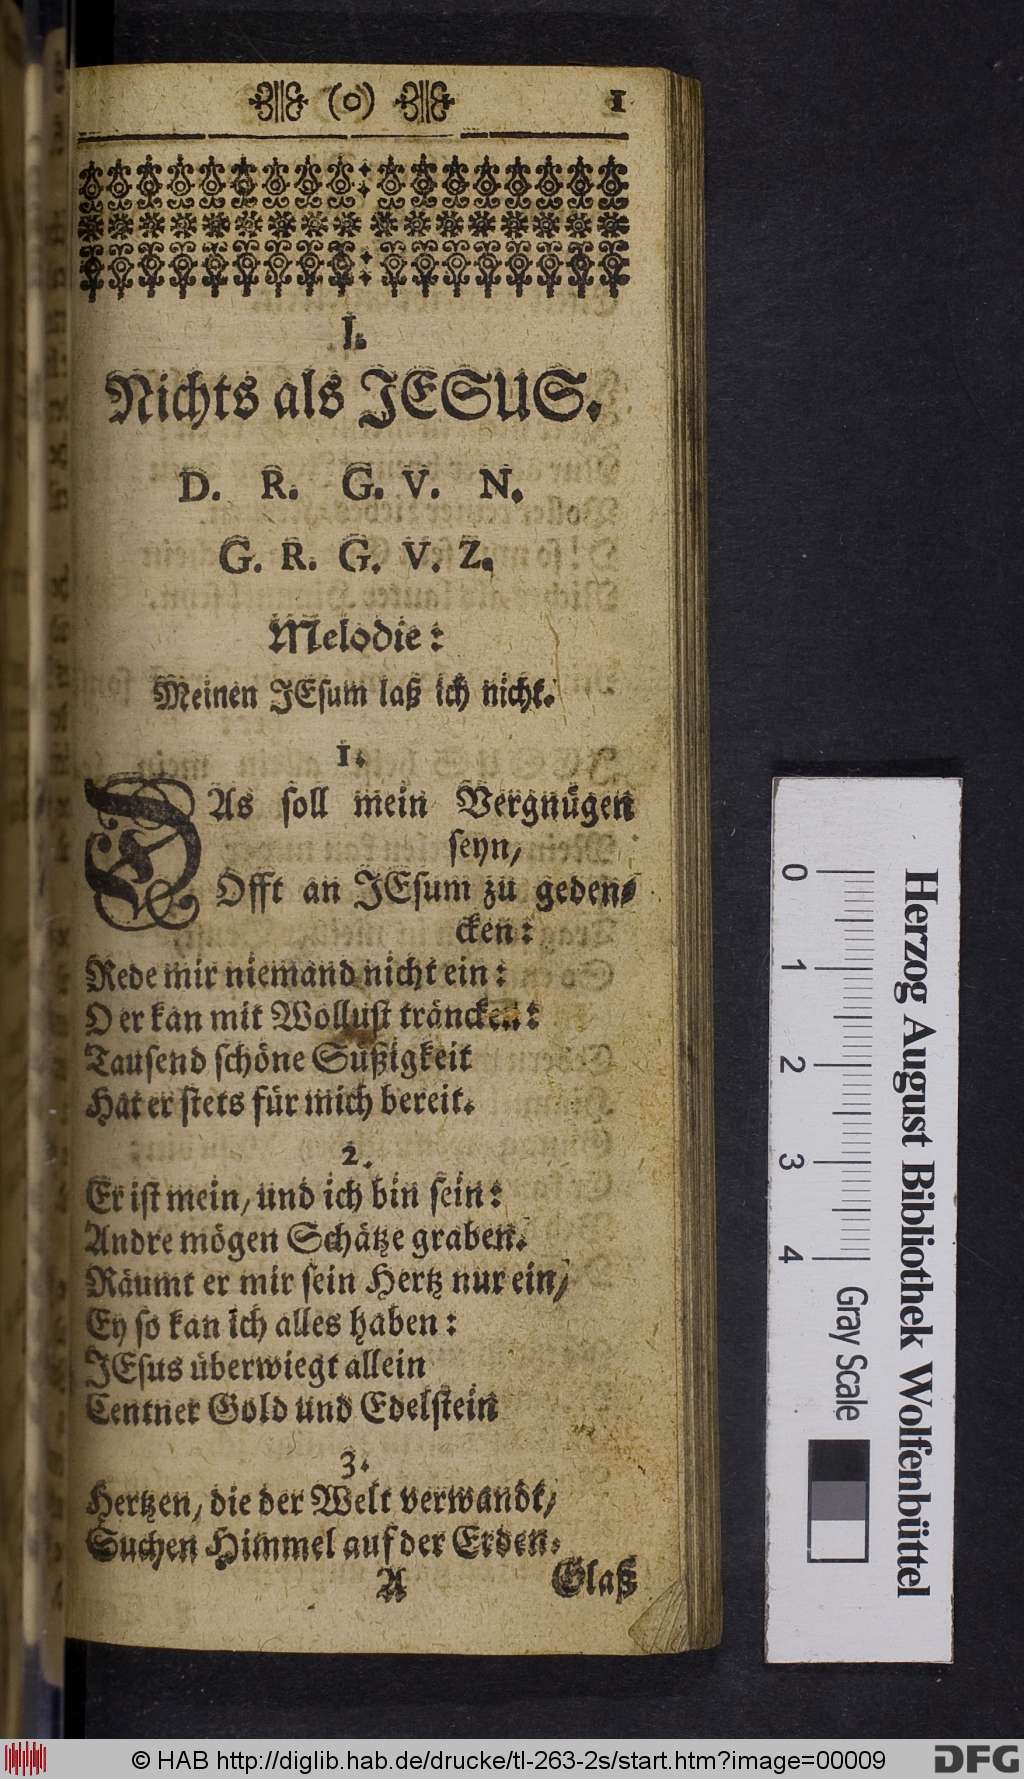 (o) 1
I.
Nichts als JESUS.
D. R. G. V. N.
G. R. G. V. Z.
Melodie:
Meinen JEsum laß ich nicht.
1.
DAs soll mein Vergnügen
seyn/
Offt an JEsum zu geden-
cken:
Rede mir niemand nicht ein:
O er kan mit Wollust träncken:
Tausend schöne Süßigkeit
Hat er stets für mich bereit.
2.
Er ist mein/ und ich bin sein:
Andre mögen Schätze graben.
Räumt er mir sein Hertz nur ein/
Ey so kan ich alles haben:
JEsus überwiegt allein
Centner Gold und Edelstein
3.
Hertzen/ die der Welt verwandt/
Suchen Himmel auf der Erden.
A Glaß
0 1 2 3 4
Gray Scale
Herzog August Bibliothek Wolfenbüttel
© HAB http://diglib.hab.de/drucke/tl-263-2s/start.htm?image=00009
DFG